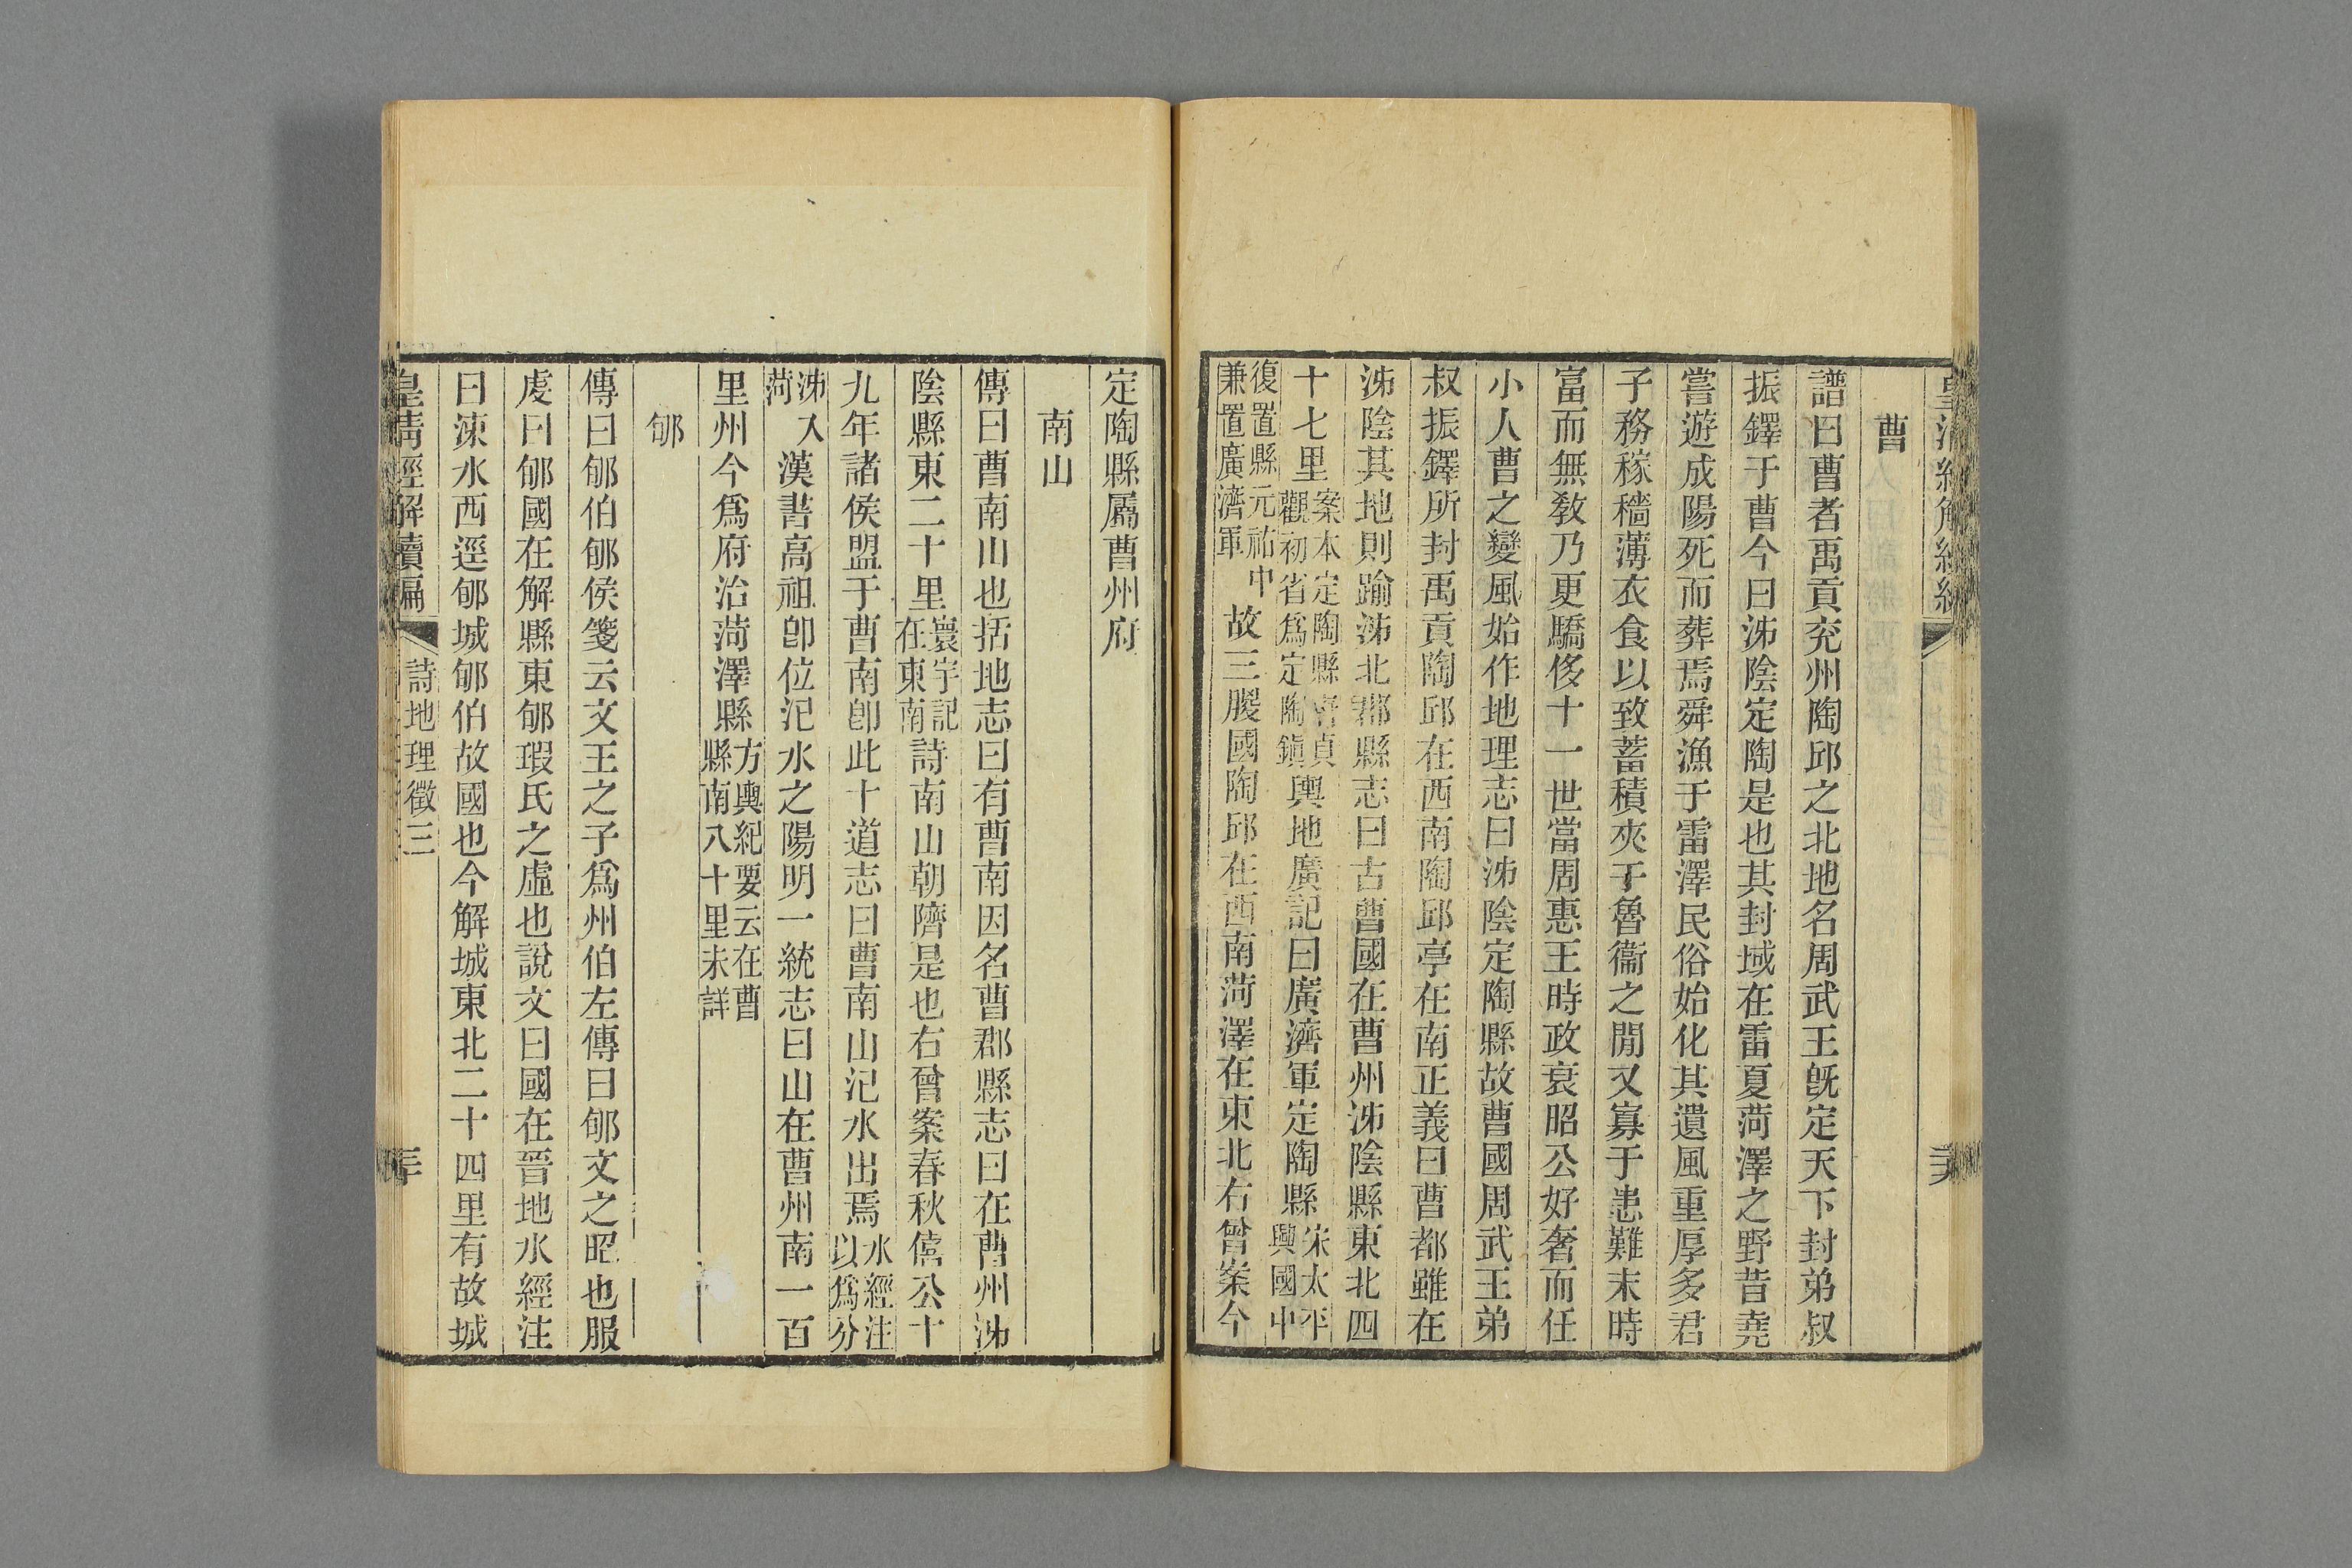 曹
譜曰曹者禹貢兖州陶邱之北地名周武王旣定天下封弟叔
振鐸于曹今曰泲陰定陶是也其封域在雷夏菏澤之野昔堯
嘗遊成陽死而葬焉舜漁于雷澤民俗始化其遺風重厚多君
子務稼穡薄衣食以致蓄積夾于魯衞之閒又寡于患難末時
富而無敎乃更驕侈十一世當周惠王時政衰昭公好奢而任
小人曹之變風始作地理志曰泲陰定陶縣故曹國周武王弟
叔振鐸所封禹貢陶邱在西南陶邱亭在南正義曰曹都雖在
泲陰其地則踰泲北郡縣志曰古曹國在曹州泲陰縣東北四
十七里案本定陶縣唐貞觀初省爲定陶鎭輿地廣記曰廣濟軍定陶縣宋太平興國中
復置縣元祐中兼置廣濟軍故三朡國陶邱在西南菏澤在東北右曾案今
定陶縣屬曹州府
南山
傳曰曹南山也括地志曰有曹南因名曹郡縣志曰在曹州泲
陰縣東二十里寰宇記在東南詩南山朝隮是也右曾案春秋僖公十
九年諸侯盟于曹南卽此十道志曰曹南山汜水出焉水經注以爲分
泲入菏漢書高祖卽位汜水之陽明一統志曰山在曹州南一百
里州今爲府治菏澤縣方輿紀要云在曹縣南八十里未詳
郇
傳曰郇伯郇侯箋云文王之子爲州伯左傳曰郇文之昭也服
虔曰郇國在解縣東郇瑕氏之虛也說文曰國在晉地水經注
曰涑水西逕郇城郇伯故國也今解城東北二十四里有故城
皇淸經解續編
詩地理徵三
三十